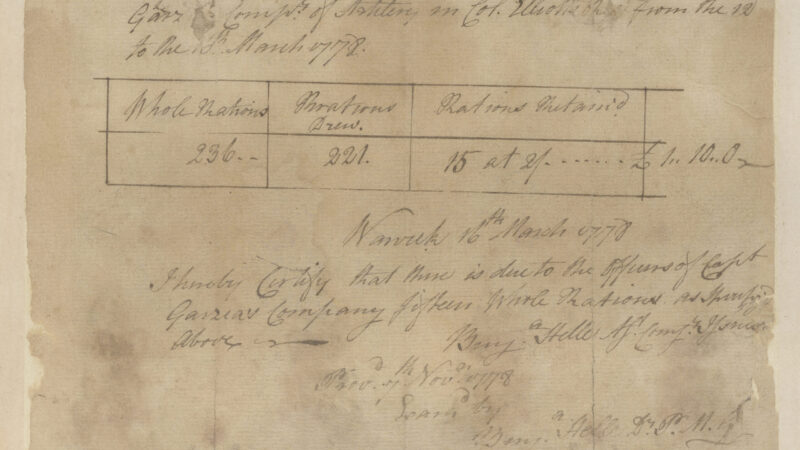 Garz Compy of Artillery in Col. from the 12
to the March 1778.
Whole Rations Rations Drew. Rations Retain'd
236.. 221. 15 at 2/. ....... £ 1.. 10.. 0
Warwick 16th March 1778
I hereby Certify that there is due to the Officers of Capt
Garzias Company fifteen Whole Rations as
Above
Benj.a Stelle Comy
Prov.d Nov.r 1778
Exam.d by
Benj.a Stelle D. P. M. G